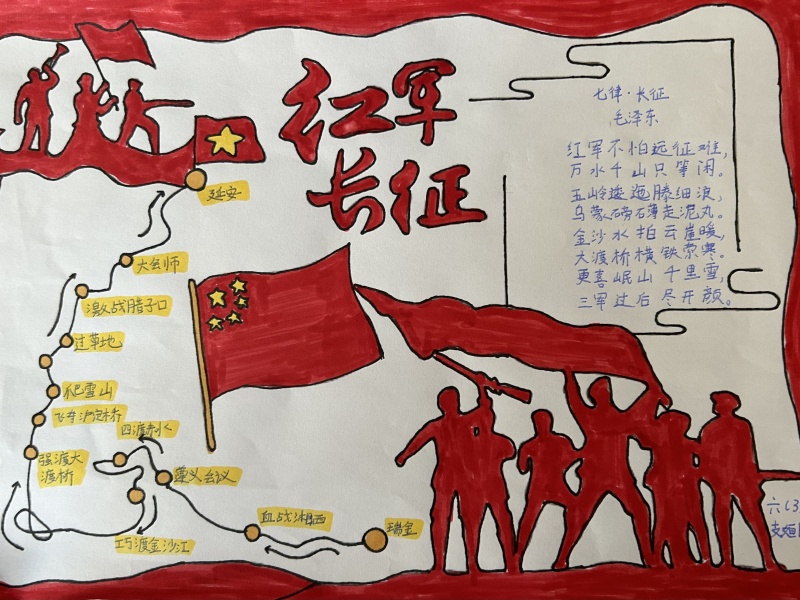 红军
长征
七律·长征
毛泽东
红军不怕远征难,
万水千山只等闲。
五岭逶迤腾细浪,
乌蒙磅礴走泥丸。
金沙水拍云崖暖,
大渡桥横铁索寒。
更喜岷山千里雪,
三军过后尽开颜。
延安
大会师
激战腊子口
过草地
爬雪山
飞夺泸定桥
四渡赤水
强渡大
渡桥
遵义会议
巧渡金沙江
血战湘西
瑞金
六(3